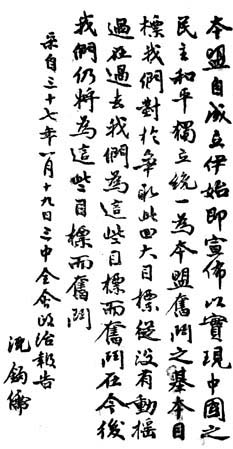 本盟自成立伊始即宣佈以實現中國之
民主和平獨立統一為本盟奮鬥之基本目
標我們對於爭取此四大目標從沒有動搖
過在過去我們為這些目標而奮鬥在今後
我們仍將為這些目標而奮鬥
采自三十七年一月十九日三中全會政治報告
沈鈞儒